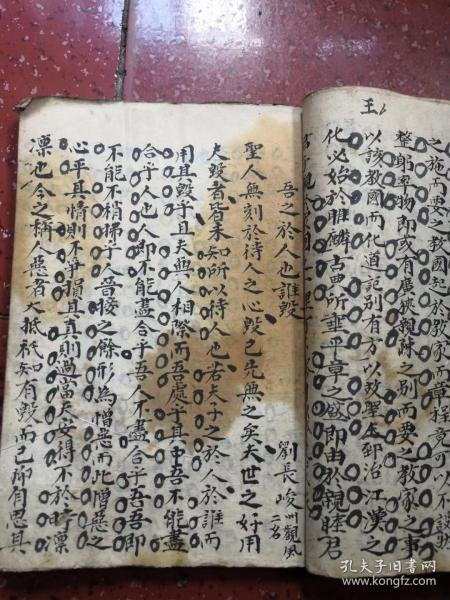 王
之施而要之教國起於教家而章程竟可以不設
整躬率物即或有廣狹親疎之別而要之教家之事
以該教國而化道記別有方以故聖 郅治江漢之
化必始於睢麟古典所垂平章之盛即由於親睦君
吾之於人也誰毀
劉長峻 州觀風
一名
聖人無刻於待人之心毀已先無之矣夫世之好用
夫毀者皆未知所以待人也若夫子之於人於誰而
用其毀乎且夫與人相際而吾處乎其中吾不能盡
合乎人也人即不能盡合乎吾人不盡合乎吾吾即
不能不稍拂乎人晉接之餘形為憎惡而此憎惡之
心平其情則不爭損其真則過當夫安得不於 凜
凜也今之稱人惡者大抵祇知有毀而已抑自思其
孔夫子旧书网
book.kongfz.com